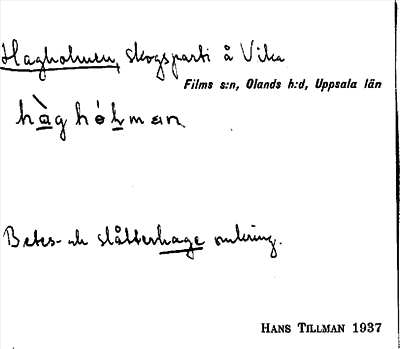 Hagholmen, skogsparti å Vika
Films s:n, Olands h:d, Uppsala län
hàg hólman
Betes- och slåtterhage omkring.
HANS TILLMAN 1937